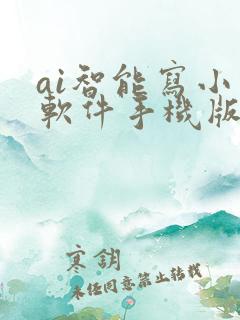 ai智能寫小
軟件手機版
寒鈅
未任同意禁止转載